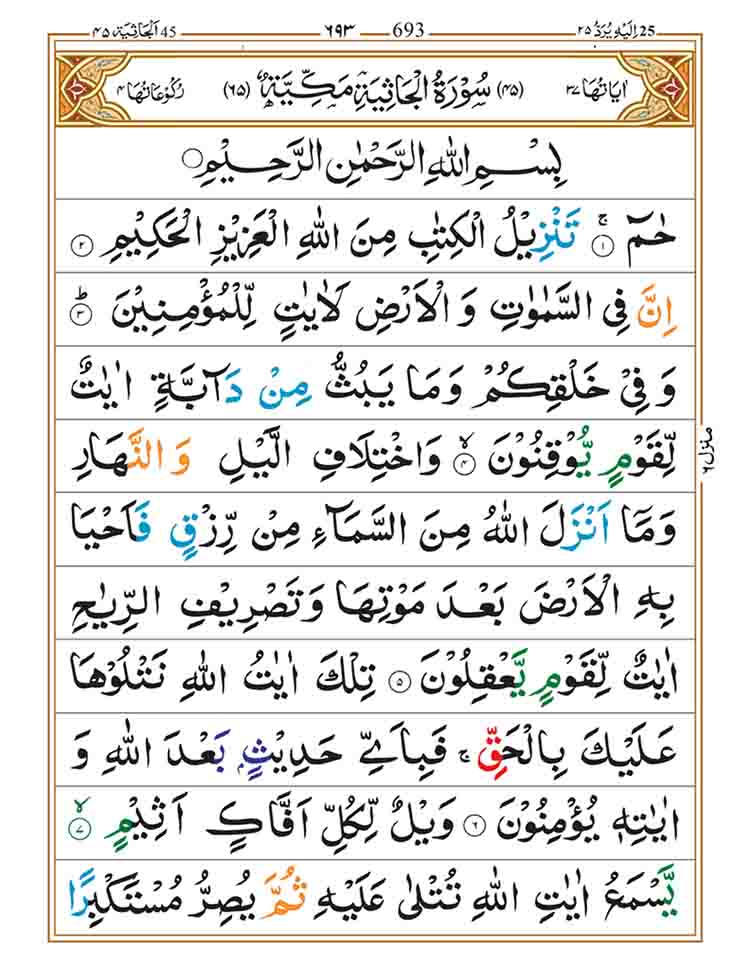 25 اِلَيْهِ يُرَدُّ ۲۵ 693 ۶۹۳ 45 اَلْجَاثِيَة ۴۵
اٰيَاتُهَا ۳۷ (۴۵) سُوْرَةُ الْجَاثِيَةِ مَكِّيَّةٌ (۶۵) رُكُوْعَاتُهَا ۴
بِسْمِ اللّٰهِ الرَّحْمٰنِ الرَّحِيْمِ ○
حٰمٓ ۚ ۝۱ تَنْزِيْلُ الْكِتٰبِ مِنَ اللّٰهِ الْعَزِيْزِ الْحَكِيْمِ ۝۲
اِنَّ فِى السَّمٰوٰتِ وَ الْاَرْضِ لَاٰيٰتٍ لِّلْمُؤْمِنِيْنَ ؕ ۝۳
وَ فِىْ خَلْقِكُمْ وَمَا يَبُثُّ مِنْ دَآبَّةٍ اٰيٰتٌ
لِّقَوْمٍ يُّوْقِنُوْنَ ۙ ۝۴ وَاخْتِلَافِ الَّيْلِ وَالنَّهَارِ
وَمَاۤ اَنْزَلَ اللّٰهُ مِنَ السَّمَآءِ مِنْ رِّزْقٍ فَاَحْيَا
بِهِ الْاَرْضَ بَعْدَ مَوْتِهَا وَتَصْرِيْفِ الرِّيٰحِ
اٰيٰتٌ لِّقَوْمٍ يَّعْقِلُوْنَ ۝۵ تِلْكَ اٰيٰتُ اللّٰهِ نَتْلُوْهَا
عَلَيْكَ بِالْحَقِّ ۚ فَبِاَىِّ حَدِيْثٍۭ بَعْدَ اللّٰهِ وَ
اٰيٰتِهٖ يُؤْمِنُوْنَ ۝۶ وَيْلٌ لِّكُلِّ اَفَّاكٍ اَثِيْمٍ ۙ ۝۷
يَّسْمَعُ اٰيٰتِ اللّٰهِ تُتْلٰى عَلَيْهِ ثُمَّ يُصِرُّ مُسْتَكْبِرًا
منزل ۶